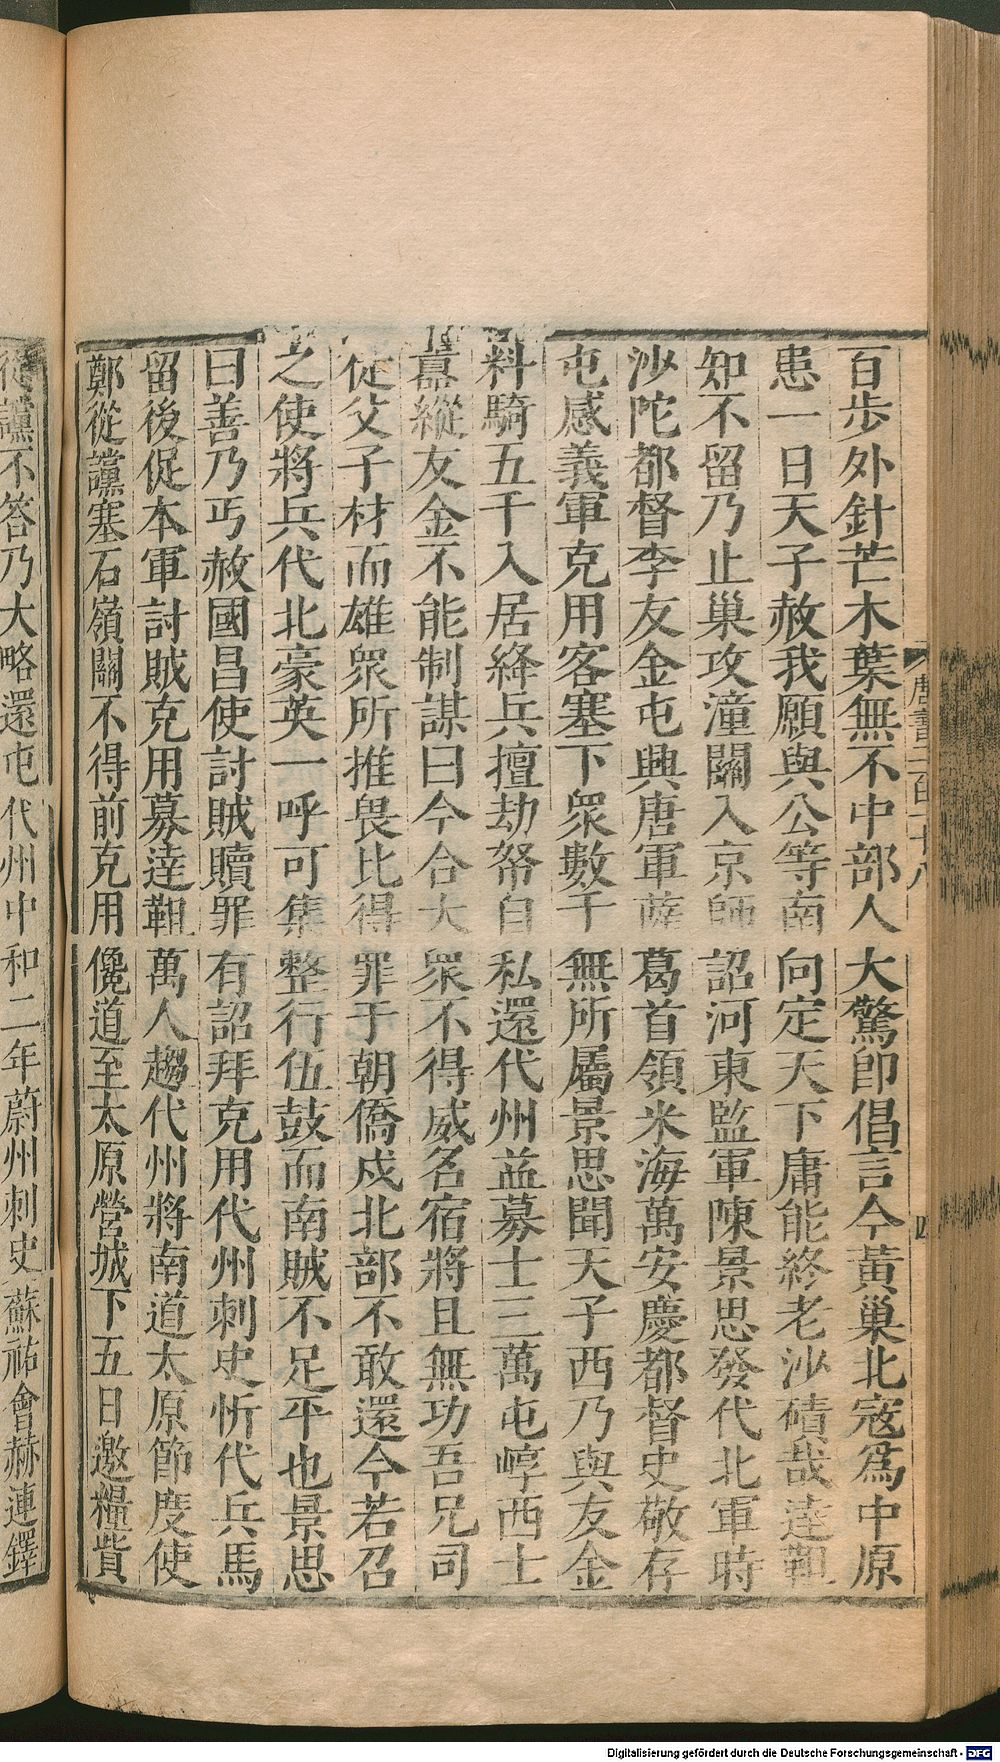 百步外針芒木葉無不中部人大驚卽倡言今黃巢北寇爲中原
患一日天子赦我願與公等南向定天下庸能終老沙磧哉逹靼
知不留乃止巢攻潼關入京師詔河東監軍陳景思發代北軍時
沙陀都督李友金屯興唐軍薩葛首領米海萬安慶都督史敬存
屯感義軍克用客塞下衆數千無所屬景思聞天子西乃與友金
料騎五千入居絳兵擅劫帑自私還代州益募士三萬屯崞西士
囂縱友金不能制謀曰今合大衆不得威名宿將且無功吾兄司
徒父子材而雄衆所推畏比得罪于朝僑戍北部不敢還今若召
之使將兵代北豪英一呼可集整行伍鼓而南賊不足平也景思
曰善乃丐赦國昌使討賊贖罪有詔拜克用代州刺史忻代兵馬
留後促本軍討賊克用募逹靼萬人趨代州將南道太原節度使
鄭從讜塞石嶺關不得前克用儳道至太原營城下五日邀糧貲
從讜不答乃大略還屯代州中和二年蔚州刺史蘇祐會赫連鐸
唐書二百一十八
四
Digitalisierung gefördert durch die Deutsche Forschungsgemeinschaft - DFG